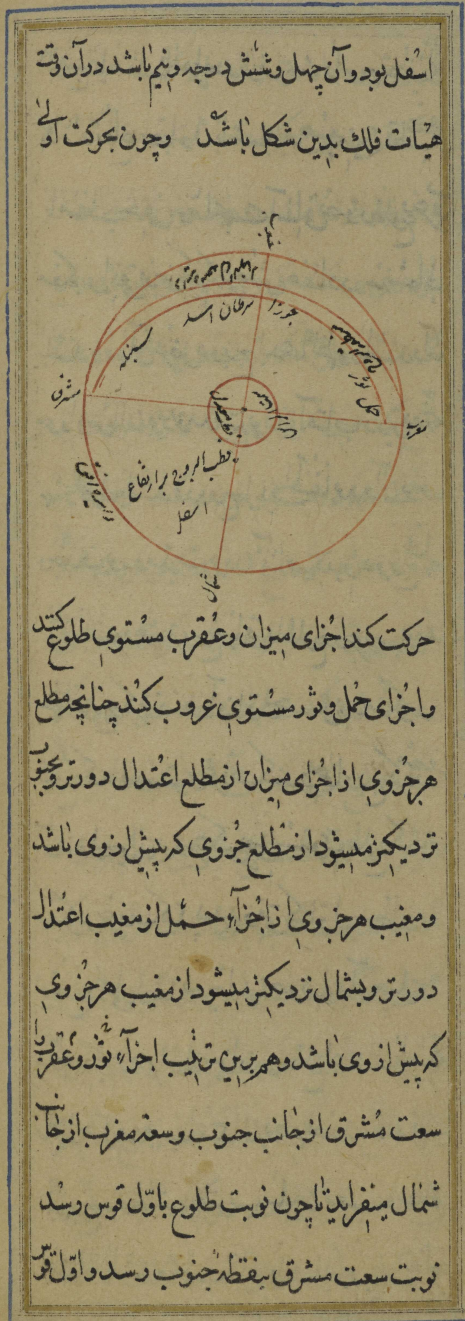 اسفل بود و آن چهل و شش درجه و نیم باشد در آن وقت
هیئات فلک بدین شکل باشد وچون بحرکت اولی
جنوب
جوزا
سرطان اسد
سنبله
حمل ثور
مشرق
مغرب
قطب البروج بر ارتفاع
اسفل
دایره افق
شمال
حرکت کند اجزای میزان و عقرب مستوی طلوع کنند
واجزای حمل وثور مستوی غروب کنند چنانچه مطلع
هر جزوی از اجزای میزان از مطلع اعتدال دورتر وبجنوب
نزدیکتر میشود از مطلع جزوی که پیش از وی باشد
ومغیب هر جزوی از اجزآء حمل از مغیب اعتدال
دورتر وبشمال نزدیکتر میشود از مغیب هر جزوی
که پیش از وی باشد وهم برین ترتیب اجزآء ثور وعقرب را
سعت مشرق از جانب جنوب وسعة مغرب از جانب
شمال میفزاید تا چون نوبت طلوع باول قوس رسد
نوبت سعت مشرق بنقطه جنوب رسد واول قوس